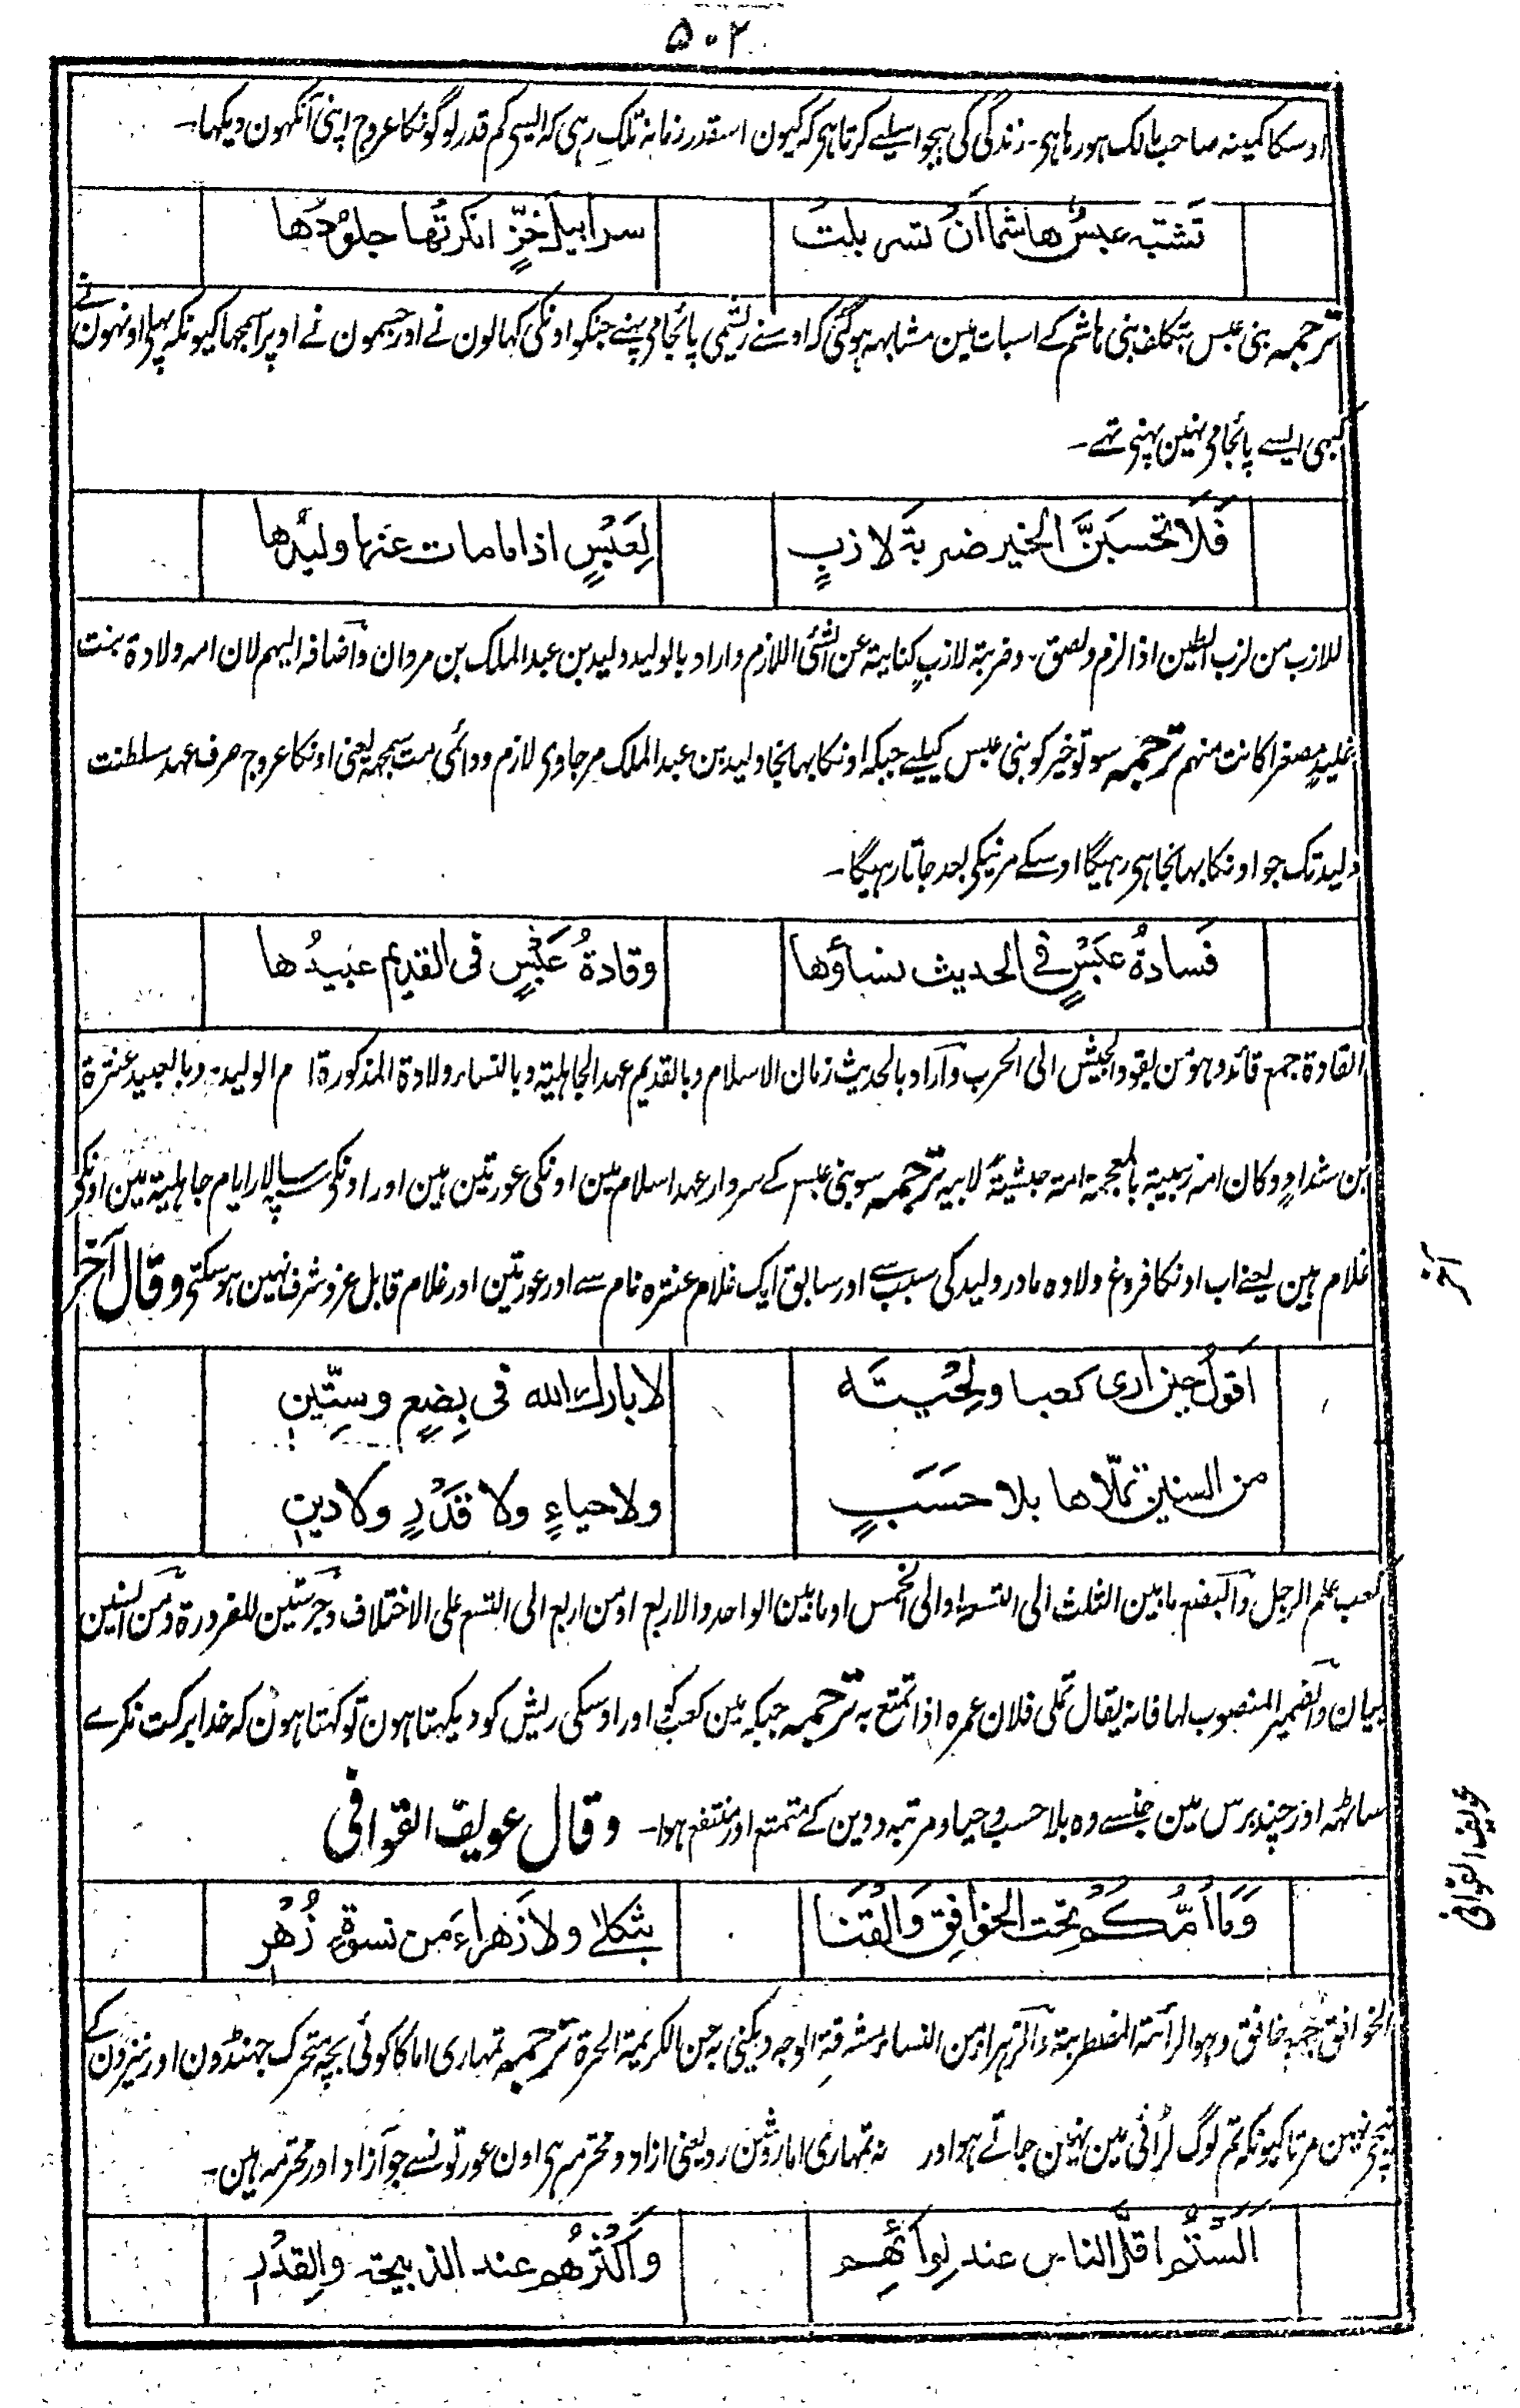 ۵۰۲
اوسکا کمینہ صاحب مالک ہو رہا ہی۔ زندگی کی ہجو اسلیے کرتا ہی کہ کیون اسقدر زمانہ تلک رہی کہ ایسی کم قدر لوگونکا عروج اپنی آنکہون دیکہا۔
تَشَبَّه عبسٌ هاشما أن تسربلت سرابيلَ خَزٍّ انكرتْها جلوُدُها
ترجمہ بنی عبس بتکلف بنی ہاشم کے اسبات مین مشابہہ ہو گئی کہ اونسے ریشمی پائجامی پہنے جنکو اونکی کہالون نے اور جسمون نے اوپرا سمجہا کیونکہ پہلی اونہون نے
کبہی ایسے پائجامی نہین پہنی تہے۔
فَلَا تحسبَنَّ الخير ضربةَ لازبٍ لِعَبْسٍ اذا ما مات عنها وليدُها
للازب من لزب الطین اذا لزم ولصق۔ وضربۃ لازبٍ کنایتہ عن الشئی اللازم واراد بالولید ولید بن عبد الملک بن مروان واضافہ الیہم لان امہ ولادۃ بنت
خلید مصغرا کانت منہم ترجمہ سو تو خیر کو بنی عبس کیلیے جبکہ اونکا بہانجا ولید بن عبد الملک مر جاوی لازم و دائمی مت سمجہہ یعنی اونکا عروج صرف عہد سلطنت
ولید تک جو اونکا بہانجا ہی رہیگا اوسکے مرنیکی بعد جاتا رہیگا۔
فَسادةُ عَبْسٍ في الحديث نساؤها وقادةُ عَبْسٍ فى القديم عبيدُها
القادۃ جمع قائد وہو من یقود الجیش الی الحرب واراد بالحدیث زمان الاسلام وبالقدیم عہد الجاہلیتہ وبالنساء ولادۃ المذکورۃ ام الولید۔ وبالعبید عنترۃ
بن شدادٍ وکان امہ زبیبۃ بالمعجمۃ امۃ حبشیۃ لابیہ ترجمہ سو بنی عبس کے سردار عہد اسلام مین اونکی عورتین ہین اور اونکی سپہ سالار ایام جاہلیۃ مین اونکی
غلام ہین یعنے اب اونکا فروغ ولادہ مادر ولید کی سبب سے اور سابق ایک غلام عنترہ نام سے اور عورتین اور غلام قابل عز و شرف نہین ہو سکتی وقال آخر
آخر
اقولُ حين ارى كعبا ولِحْيتَه لا بارك الله فى بِضْعٍ وسِتّينِ
من السنين تملّاها بلا حَسَبٍ ولا حياءٍ ولا قَدْرٍ ولا دينِ
کعب علم الرجل والبضع ما بین الثلث الی التسع او الی الخمس او ما بین الواحد والاربع او من اربع الی التسع علی الاختلاف وجرستین للضرورۃ ومن السنین
بیان والضمیر المنصوب لہا فانہ یقال تملی فلان عمرہ اذا تمتع بہ ترجمہ جبکہ مین کعب کو اور اوسکی ریش کو دیکہتا ہون تو کہتا ہون کہ خدا برکت نکرے
ساٹہہ اور چند برس مین جنسے وہ بلا حسب و حیا و مرتبہ و دین کے متمتع اور منتفع ہوا۔ وقال عویف القوافی
عویف القوافی
وَمَا أُمُّكُمْ تحت الخوافِقِ وَالْقَنَا بثكلى ولا زَهراءَ مِن نسوةٍ زُهْرِ
الخوافق جمع خافق وہو الرأیۃ المضطربۃ والزہراء من النساء مشرقۃ الوجہ ویکنی بہ عن الکریمۃ الحرۃ ترجمہ تمہاری اما کا کوئی بچہ متحرک جہنڈون اور نیزون کے
نیچی نہین مرتا کیونکہ تم لوگ لڑائی مین نہین جاتے ہو اور نہ تمہاری اما روشن رو یعنی ازاد و محترم ہی اون عورتونسے جو آزاد اور محترمہ ہین۔
أَلَسْتُم اقلَّ الناس عند لِوائِهِم وَأكثرَهُم عند الذبيحة والقِدْرِ